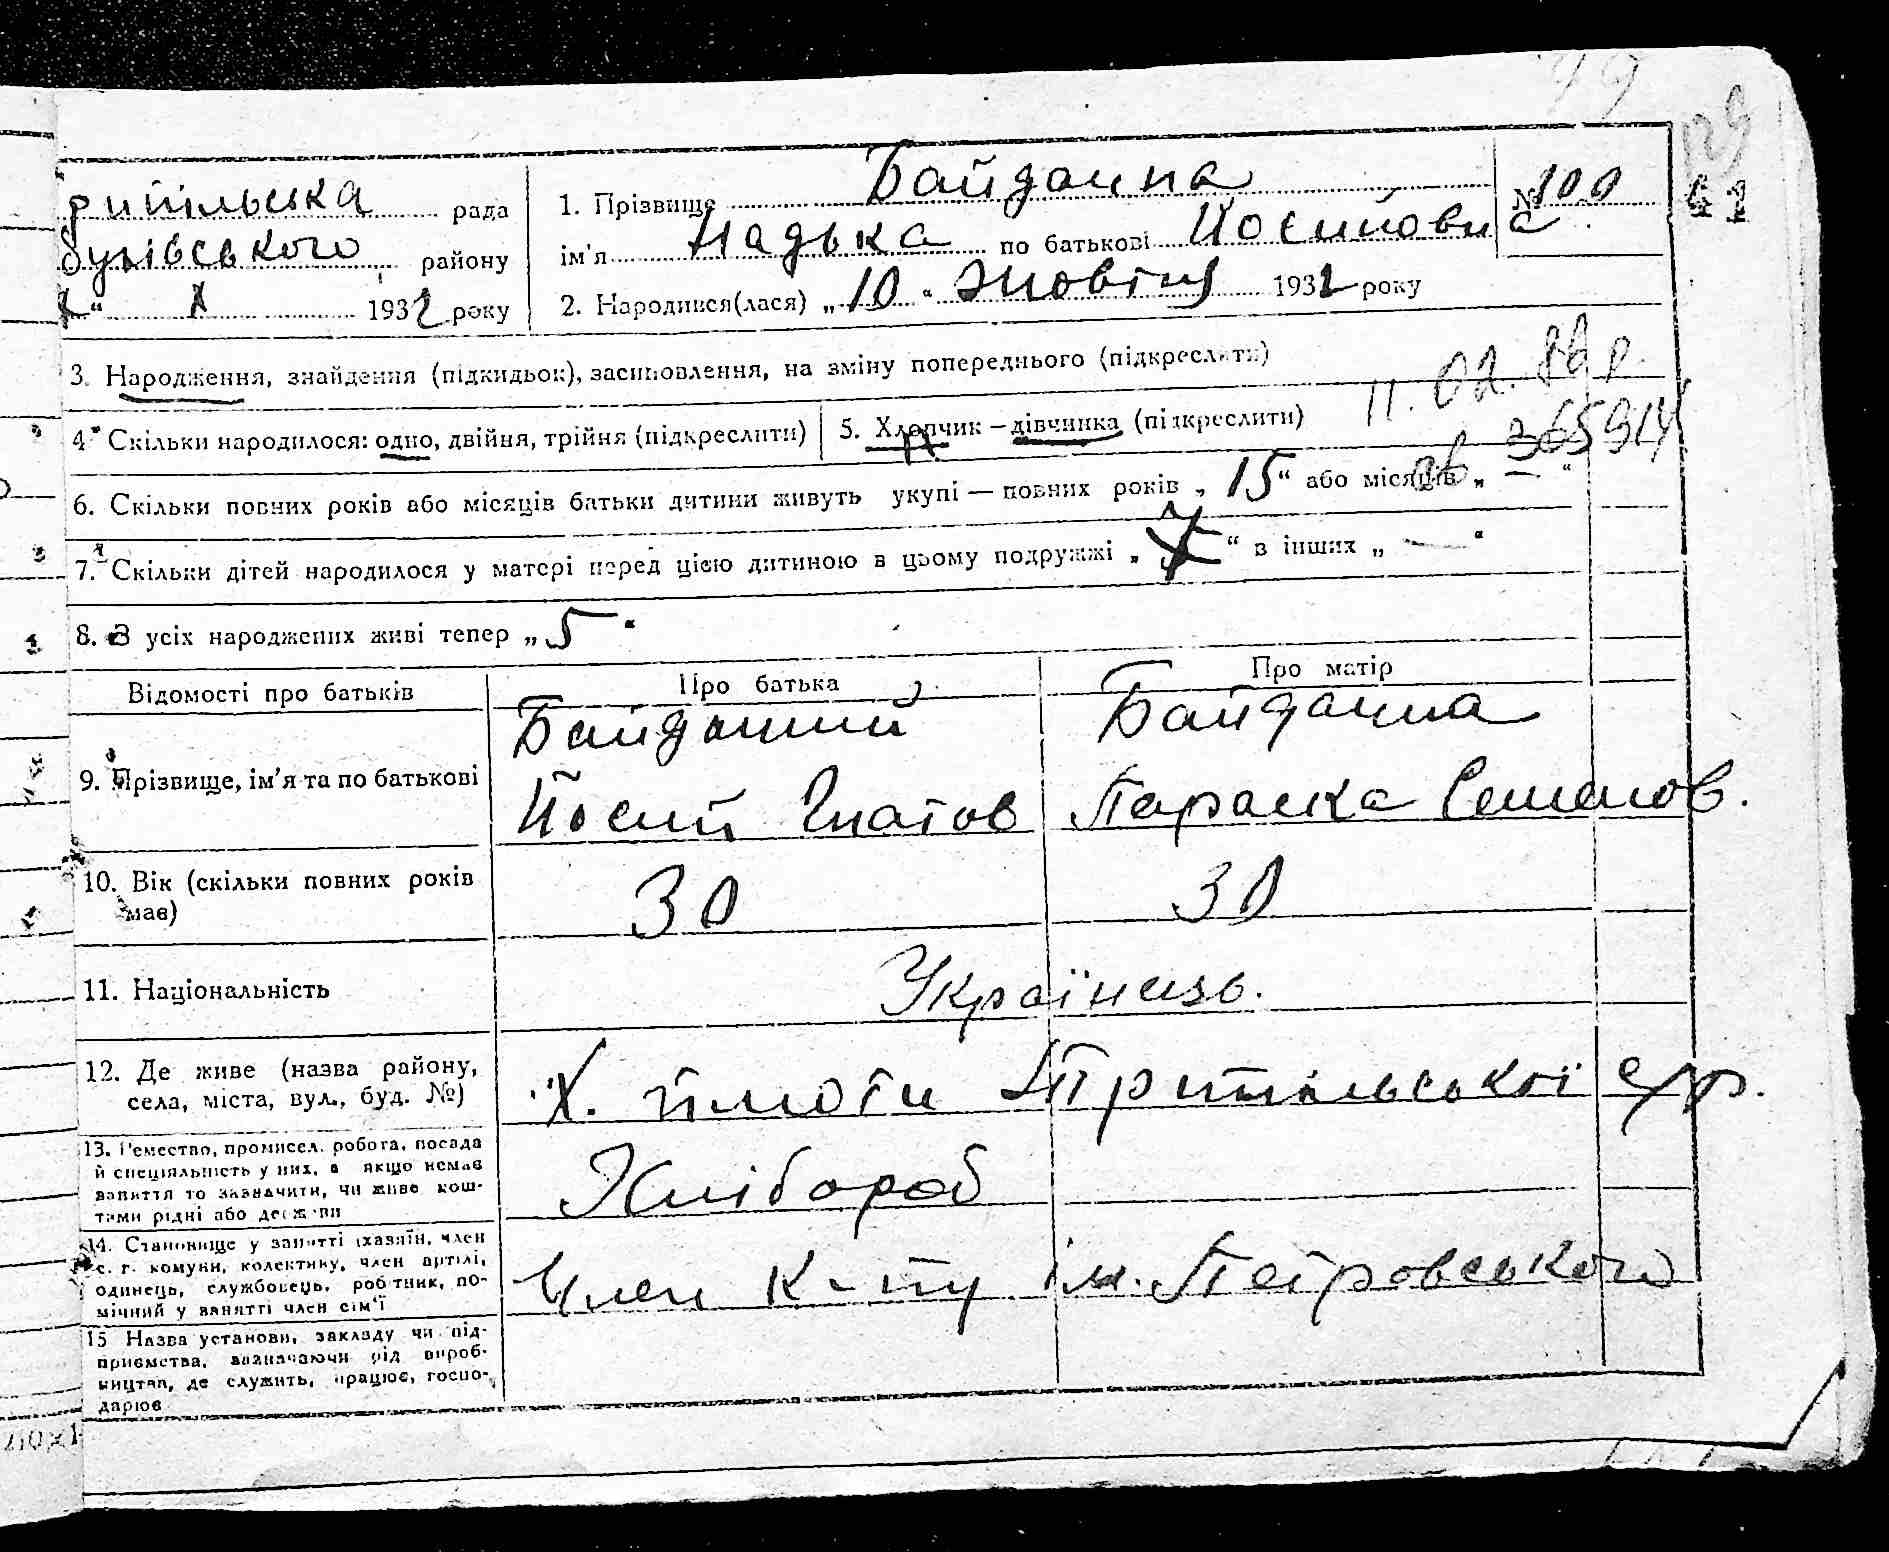 99
129
41
рипільська рада
бухівського району
“ X 1932 року
1. Прізвище Байдачна
№ 100
ім'я Надька по батькові Йосиповна
2. Народився(лася) „10“ Жовтня 1932 року
3. Народження, знайдення (підкидьок), засиновлення, на зміну попереднього (підкреслити)
11. 02. 86 р.
4. Скільки народилося: одно, двійня, трійня (підкреслити)
5. Хлопчик – дівчинка (підкреслити)
365914
6. Скільки повних років або місяців батьки дитини живуть укупі — повних років „15“ або місяців „—“
7. Скільки дітей народилося у матері перед цією дитиною в цьому подружжі „ “ з інших „—“
8. З усіх народжених живі тепер „5“
Відомості про батьків Про батька Про матір
Байдачний Байдачна
9. Прізвище, ім'я та по батькові
Йосип Гнатов Параска Семенов.
10. Вік (скільки повних років має) 30 30
11. Національність Українць.
12. Де живе (назва району,
села, міста, вул., буд. №)
Х. Трипільської с/р.
13. Ремество, промисел, робота, посада
й спеціяльність у них, а якщо немає
заняття то зазначити, чи живе кош-
тами рідні або держави
Хлібороб
14. Становище у занятті (хазяїн, член
с. г. комуни, колективу, член артілі,
одинець, службовець, робітник, по-
мічний у занятті член сім'ї
Член к-ту ім. Петровського
15 Назва установи, закладу чи під-
приємства, зазначаючи рід вироб-
ництва, де служить, працює, госпо-
дарює